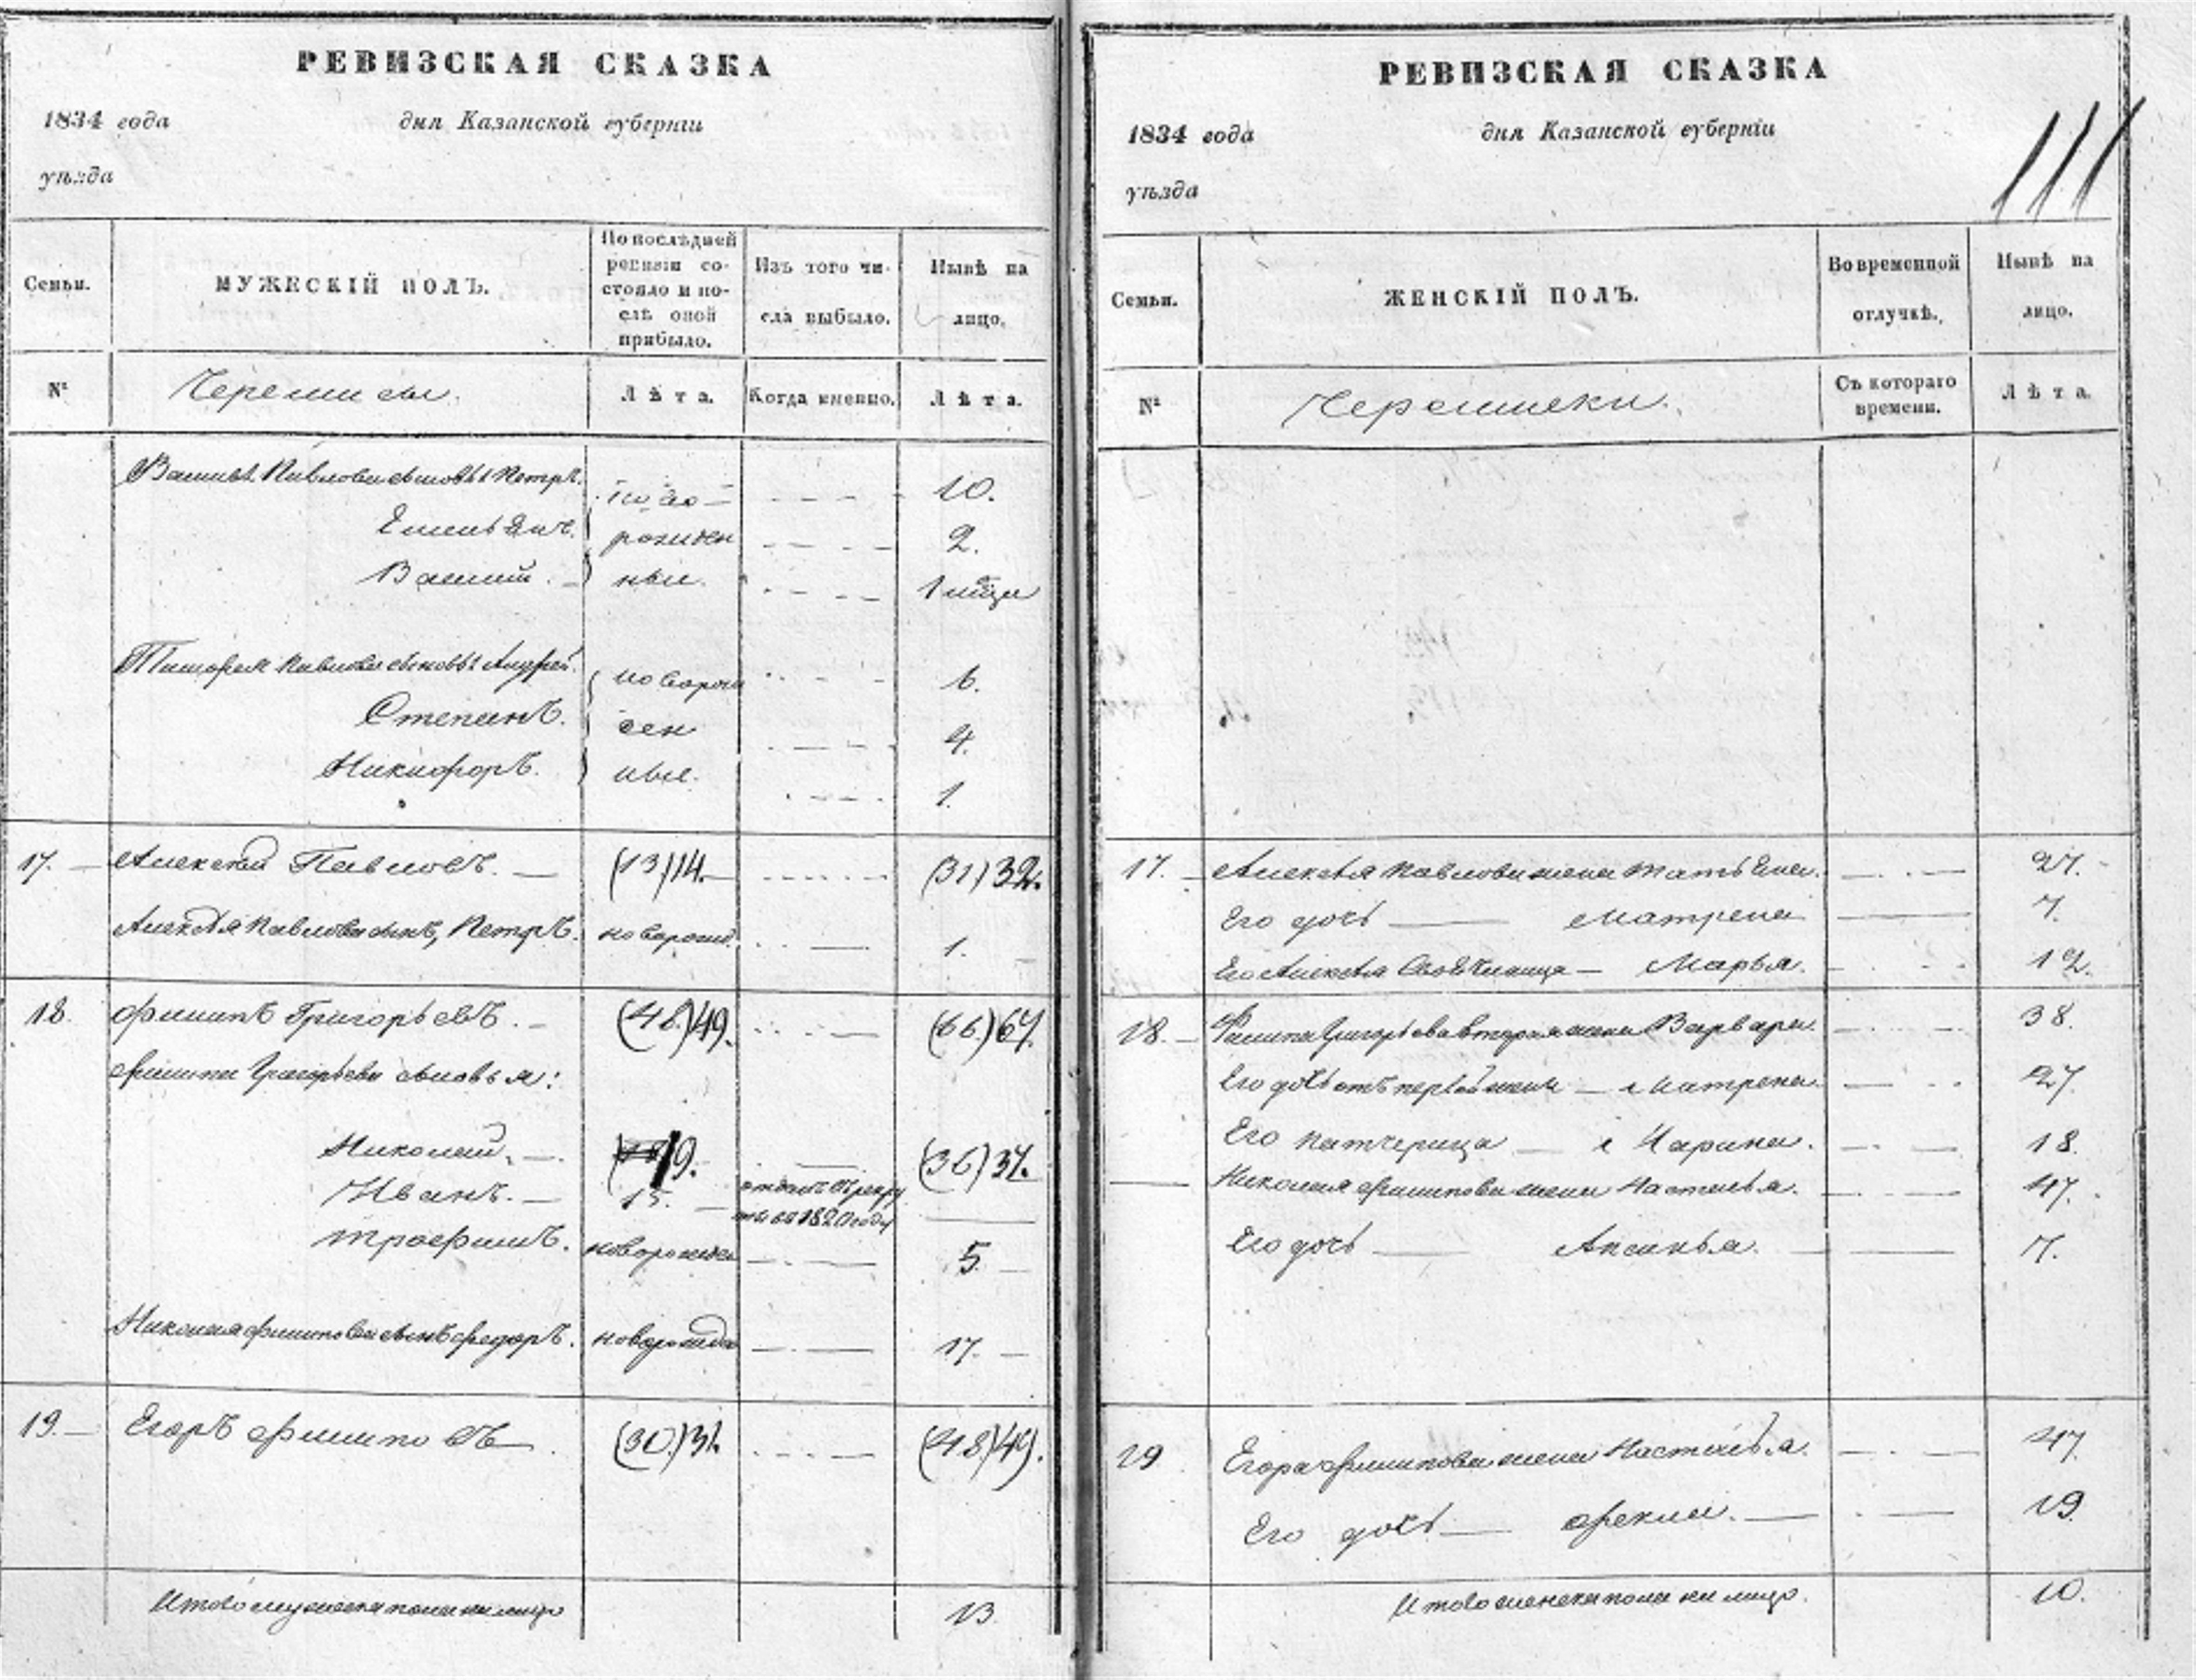 РЕВИЗСКАЯ СКАЗКА
1834 года дня Казанской губерніи
уѣзда
Семьи.
МУЖЕСКІЙ ПОЛЪ.
По послѣдней
ревизіи со-
стояло и по-
слѣ оной
прибыло.
Изъ того чи-
сла выбыло.
Нынѣ на
лицо.
№
Черемисы.
Лѣта.
Когда именно.
Лѣта.
Павлова сыновья Петръ. ново 10.
2.
Василій. ные. 1
Павлова сыновья Андрей. новорож 6.
Степанъ. ден 4.
Никифоръ. ные. 1.
17. Алексей Павловъ. (13)14. (31)32.
Алексея Павлова сынъ, Петръ. новорожд. 1.
18. Филипъ Григорьевъ. (48)49. (66)67.
Филипа Григорьева сыновья:
Николай. 19. (36)37.
Иванъ. 15. отданъ въ рекру
ты въ 1820 году
Трофимъ. новорожден 5.
Николая Филипова сынъ Федоръ. новорожден 17.
19. Егоръ Филиповъ. (30)31. (48)49.
Итого мужеска пола на лицо 13.
РЕВИЗСКАЯ СКАЗКА
111
1834 года дня Казанской губерніи
уѣзда
Семьи.
ЖЕНСКІЙ ПОЛЪ.
Во временной
отлучкѣ.
Нынѣ на
лицо.
№
Черемиски.
Съ котораго
времени.
Лѣта.
17. Алексея Павлова жена Татьяна. 27.
Его дочь Матрена 7.
Его Алексея Марья. 12.
18. Филипа Григорьева вторая жена Варвара. 38.
Его дочь отъ первой жены Матрена. 27.
Его патчерица Марина. 18.
Николая Филипова жена Настасья. 47.
Его дочь Аксинья. 7.
19 Егора Филипова жена Настасья. 47.
Его дочь Фекла. 19.
Итого женска пола на лицо. 10.